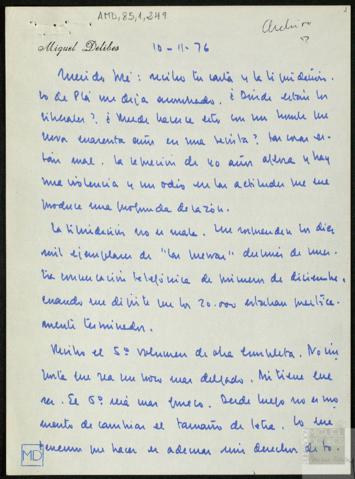 AMD,85,1,249
Archivo
Miguel Delibes
10-II-76
Querido José: recibo tu carta y la liquidación.
Lo de Plá me deja anonadado. ¿Dónde están los
liberales? ¿Puede hacerse esto con un hombre que
lleva cuarenta años en una revista? Las cosas es-
tán mal. La represión de 40 años aflora y hay
una violencia y un odio en las actitudes que me
produce una profunda desazón.
La liquidación no es mala. Me sorprenden los diez
mil ejemplares de "Las guerras" después de nues-
tra conversación telefónica de primeros de diciembre,
cuando me dijiste que los 20.000 estaban práctica-
mente terminados.
Recibo el 5º volumen de obra completa. No im-
porta que sea un poco más delgado. Ni tiene que
ser. El 6º será más grueso. Desde luego no es mo-
mento de cambiar el tamaño de letra. Lo que
tenemos que hacer es adecuar mis derechos de to-
MD